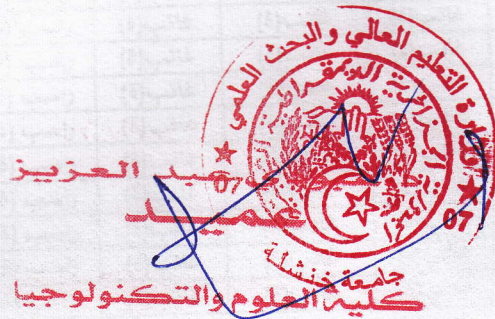 وزارة التعليم العالي والبحث العلمي
الجمهورية الجزائرية الديمقراطية
07
07
عبد العزيز
عميد
جامعة خنشلة
كلية العلوم والتكنولوجيا